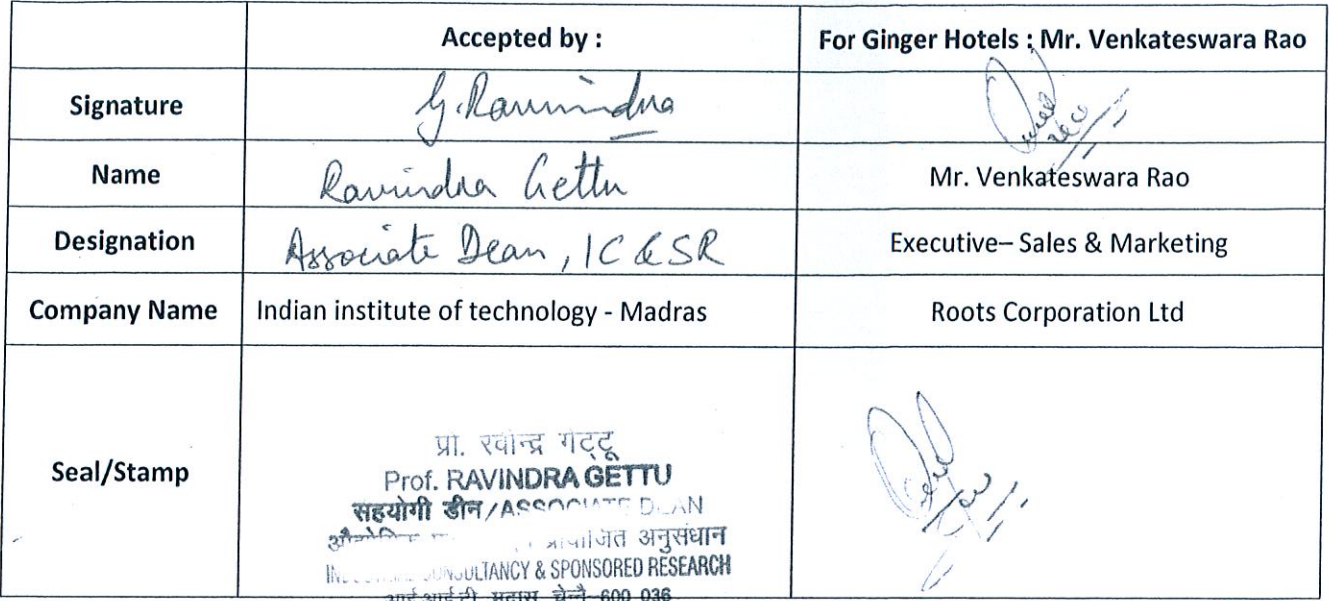 Accepted by : For Ginger Hotels : Mr. Venkateswara Rao
Signature G. Ravindra
Name Ravindra Gettu Mr. Venkateswara Rao
Designation Associate Dean, IC & SR Executive– Sales & Marketing
Company Name Indian institute of technology - Madras Roots Corporation Ltd
प्रो. रवीन्द्र गेट्टू
Prof. RAVINDRA GETTU
Seal/Stamp
सहयोगी डीन/ASSOCIATE DEAN
अनुसंधान
CONSULTANCY & SPONSORED RESEARCH
आई.आई.टी. मद्रास, चेन्नै-600 036